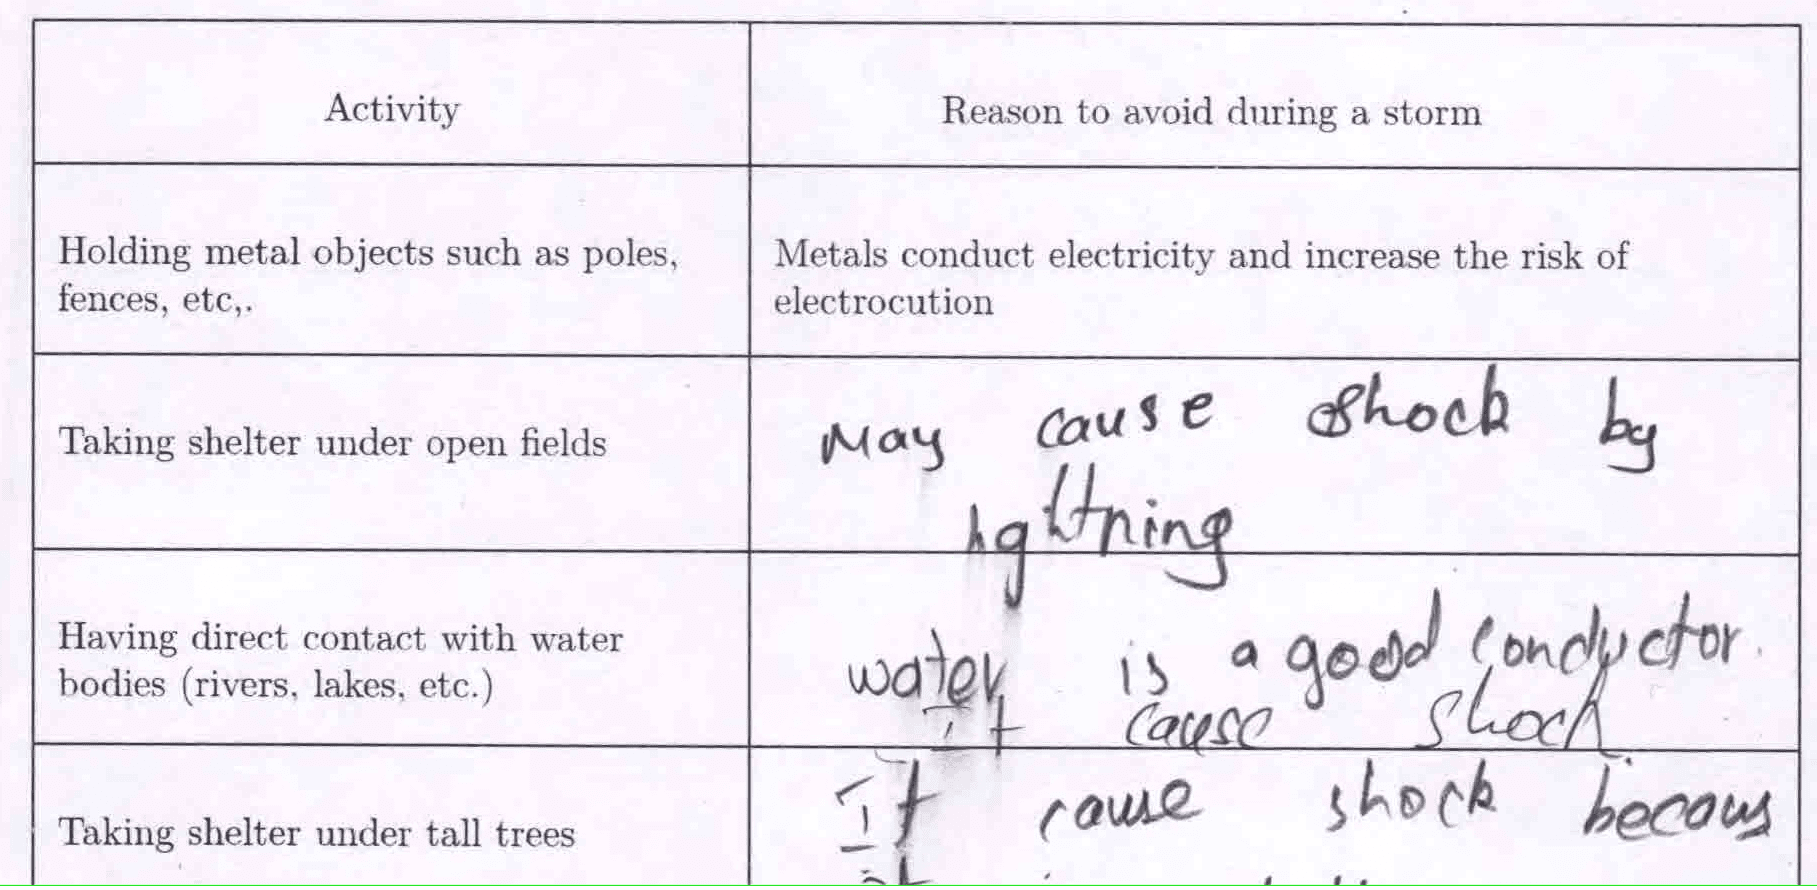 Activity
Reason to avoid during a storm
Holding metal objects such as poles,
fences, etc,.
Metals conduct electricity and increase the risk of
electrocution
Taking shelter under open fields
May cause shock by
lightning
Having direct contact with water
bodies (rivers, lakes, etc.)
water is a good conductor.
It cause shock
Taking shelter under tall trees
It cause shock becaus